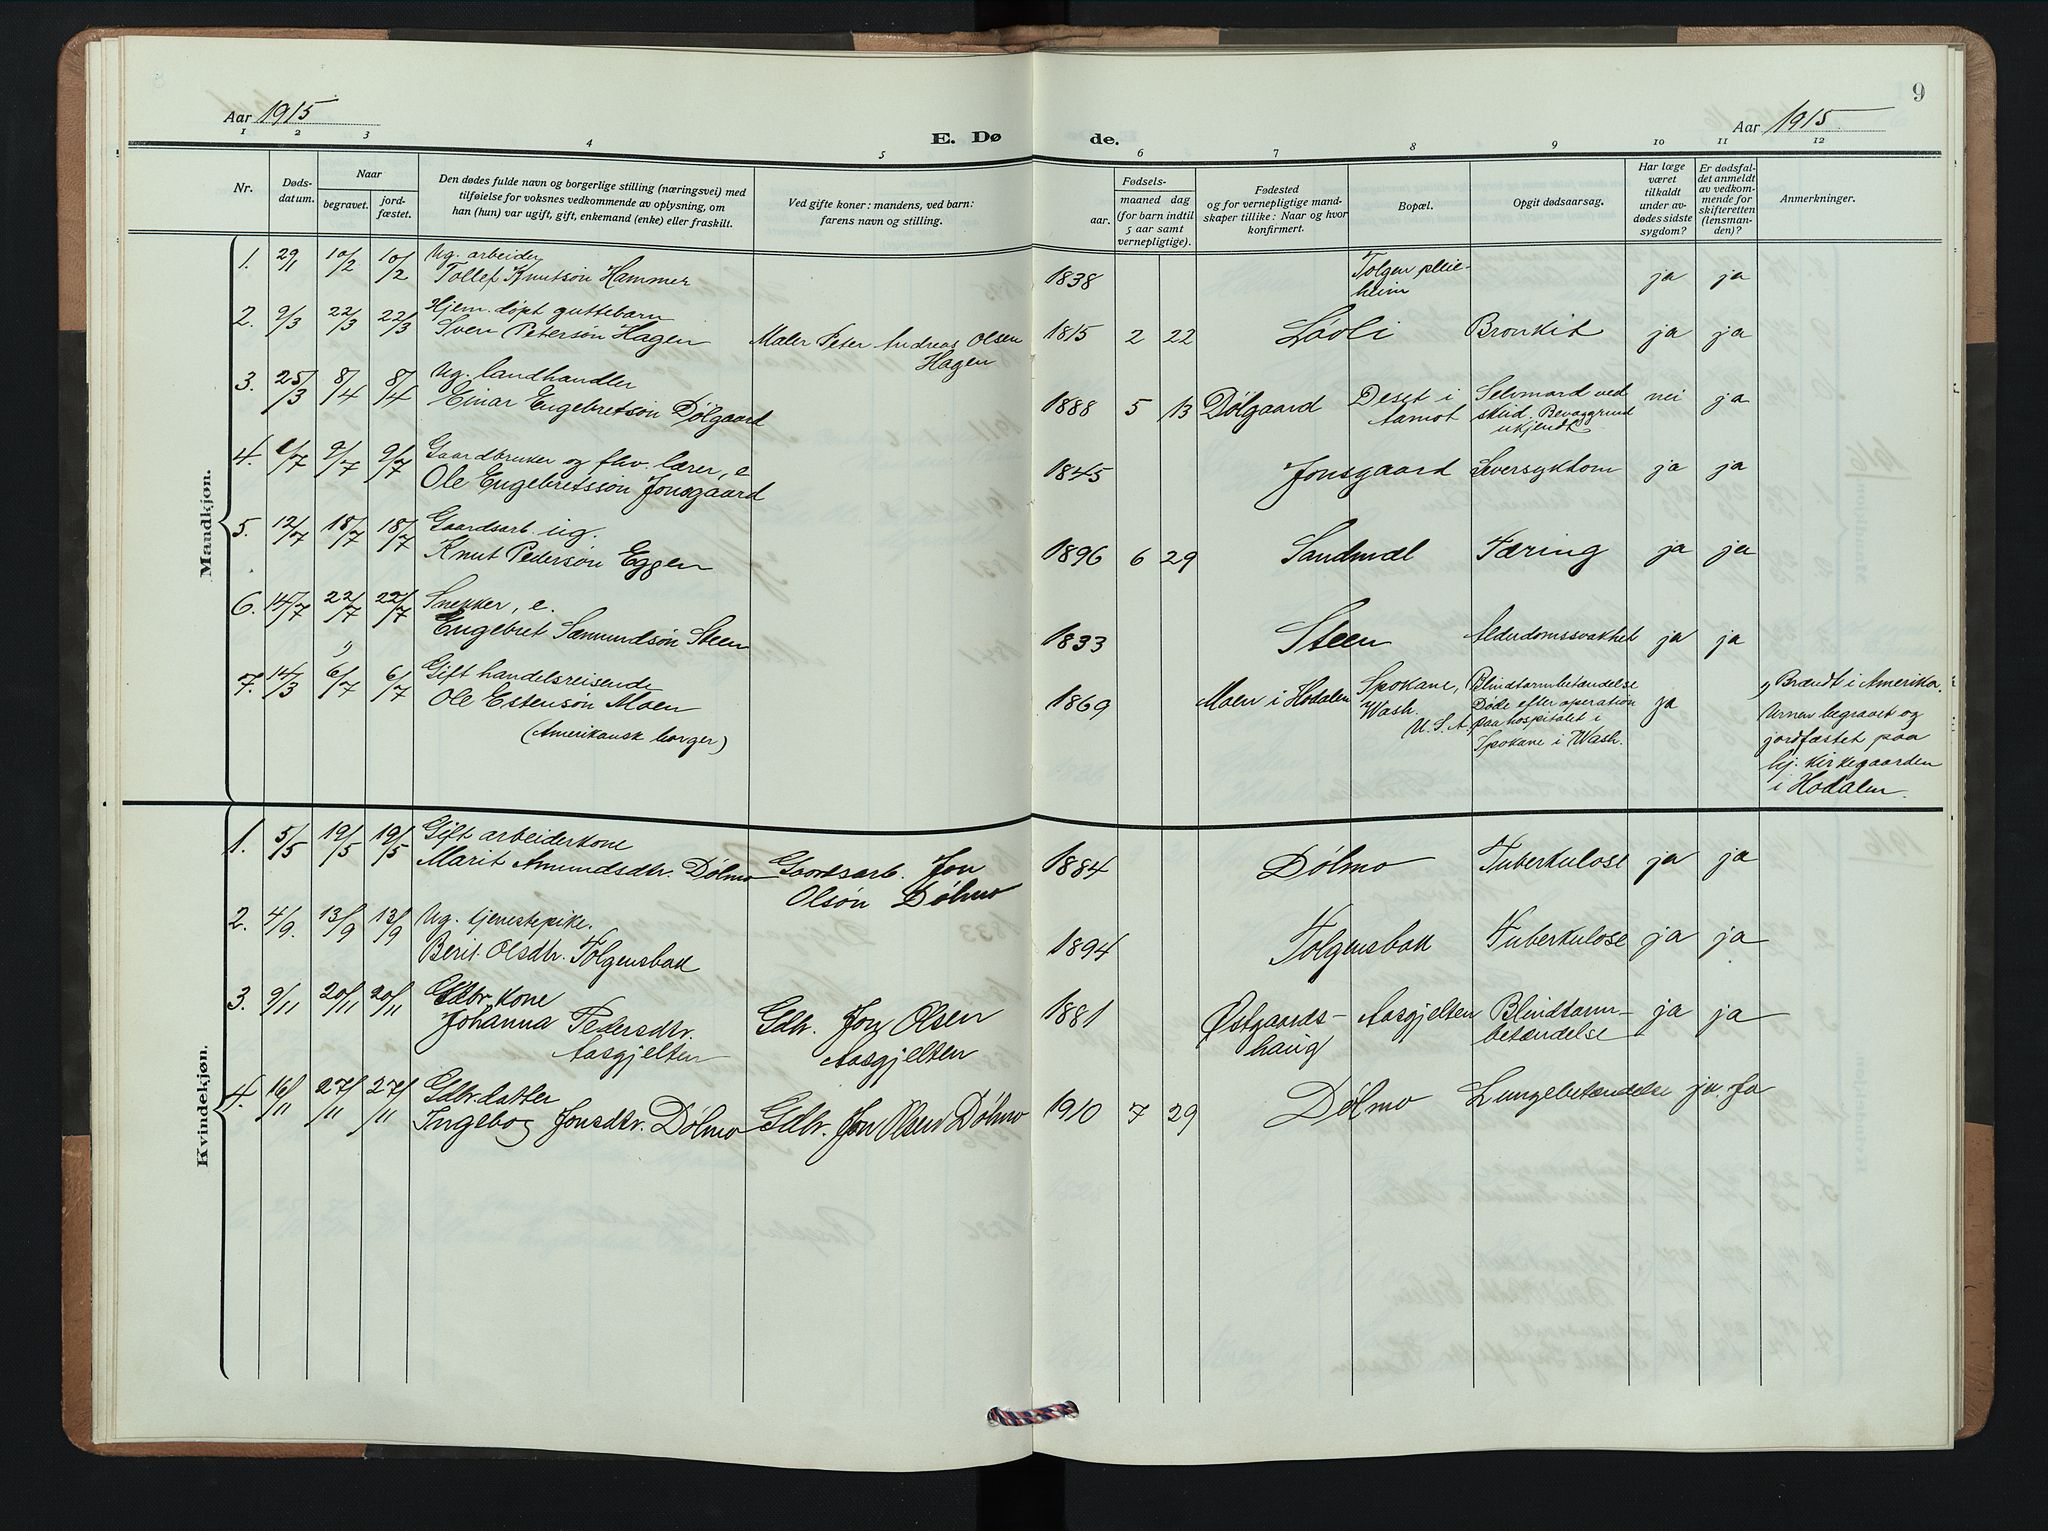 9
Aar 1915
E. Dø
de.
Aar 1915
1 2 3 4 5 6 7 8 9 10 11 12
Nr.
Døds-
datum.
Naar
begravet.
jord-
fæstet.
Den dødes fulde navn og borgerlige stilling (næringsvei) med
tilføielse for voksnes vedkommende av oplysning, om
han (hun) var ugift, gift, enkemand (enke) eller fraskilt.
Ved gifte koner: mandens, ved barn:
farens navn og stilling.
Fødsels-
aar.
maaned dag
(for barn indtil
5 aar samt
vernepligtige).
Fødested
og for vernepligtige mand-
skaper tillike: Naar og hvor
konfirmert.
Bopæl.
Opgit dødsaarsag.
Har læge
været
tilkaldt
under av-
dødes sidste
sygdom?
Er dødsfal-
det anmeldt
av vedkom-
mende for
skifteretten
(lensman-
den)?
Anmerkninger.
Mandkjøn.
1. 29/1 10/2 10/2 Ug. arbeider
Tollef Knutsøn Hammer
1838 Tolgen pleie-
heim ja ja
2. 9/3 22/3 22/3 Hjem. døpt guttebarn
Sven Petersøn Hagen Maler Peter Andreas Olsen
Hagen
1815 2 22 Lóoli Bronkit ja ja
3. 25/3 8/4 8/4 Ug. landhandler
Einar Engebretsøn Dølgaard
1888 5 13 Dølgaard Deset i
Aamot Selvmord ved
skud. Bevæggrund
ukjendt. nei ja
4. 2/7 9/7 9/7 Gaardbruker og fhv. lærer, e
Ole Engebretssøn Jonsgaard
1845 Jonsgaard Leversykdom ja ja
5. 12/7 18/7 18/7 Gaardsarb. ug.
Knut Pedersøn Eggen
1896 6 29 Sandmæl Tæring ja ja
6. 14/7 22/7 22/7 Snekker, e.
Engebret Sæmundsøn Steen
1833 Steen Alderdomssvakhet ja ja
7. 14/3 6/7 6/7 Gift handelsreisende
Ole Estensøn Moen
(Amerikansk borger)
1869 Moen i Hodalen Spokane,
Wash.
U. S. A. Blindtarmbetændelse
Døde efter operation
paa hospitalet i
Spokane i Wash. ja
Brændt i Amerika.
Urnen begravet og
jordfæstet paa
hj. kirkegaarden
i Hodalen.
Kvindekjøn.
1. 5/5 19/5 19/5 Gift arbeiderkone
Marit Amundsdtr. Dølmo Gaardsarb. Jon
Olsøn Dølmo
1884 Dølmo Tuberkulose ja ja
2. 4/9. 13/9 13/9 Ug. tjenestepike.
Berit Olsdtr. Tolgensbak
1894 Tolgensbak Tuberkulose ja ja
3. 9/11 20/11 20/11 Gdbr. kone
Johanna Pedersdtr.
Aasgjelten Gdbr. Jon Olsen
Aasgjelten
1881 Østgaards-
haug Aasgjelten Blindtarm-
betændelse ja ja
4. 16/11 27/11 27/11 Gdbr. datter
Ingebog Jonsdtr. Dølmo Gdbr. Jon Olsen Dølmo
1910 7 29 Dølmo Lungebetændelse ja. Ja